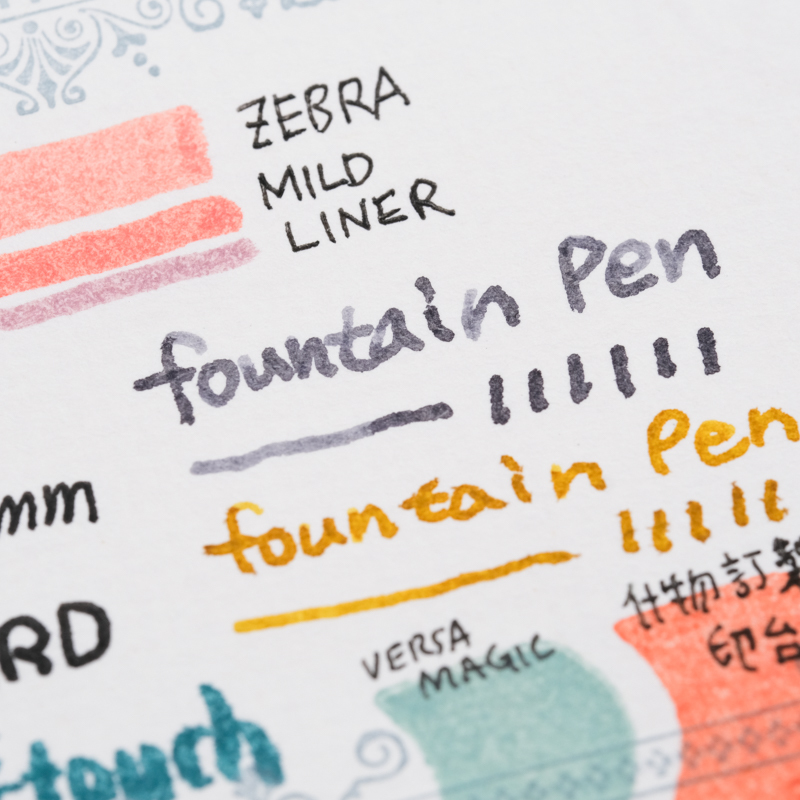 ZEBRA
MILD
LINER
fountain Pen
fountain Pen
mm
RD
touch
VERSA
MAGIC
什物訂製
印台